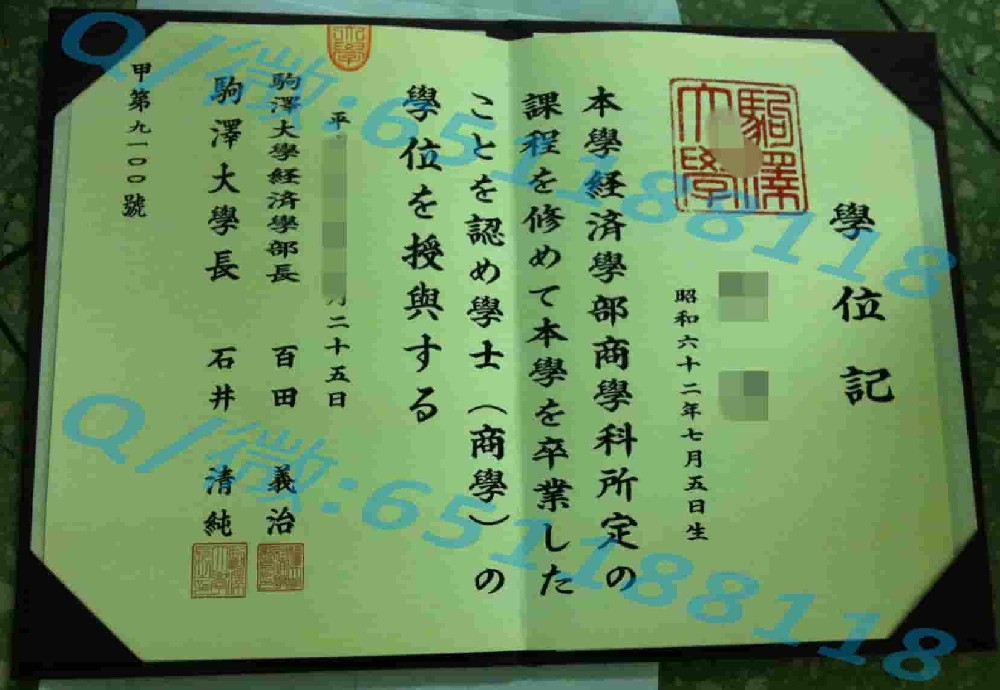 學位記
駒澤大學
昭和六十二年七月五日生
本學経済學部商學科所定の
課程を修めて本學を卒業した
ことを認め學士（商學）の
學位を授與する
平
月二十五日
駒澤大學経済學部長 百田 義治
駒澤大學長 石井 清純
甲第九一〇〇號
Q/微:651188118
Q/微:651188118